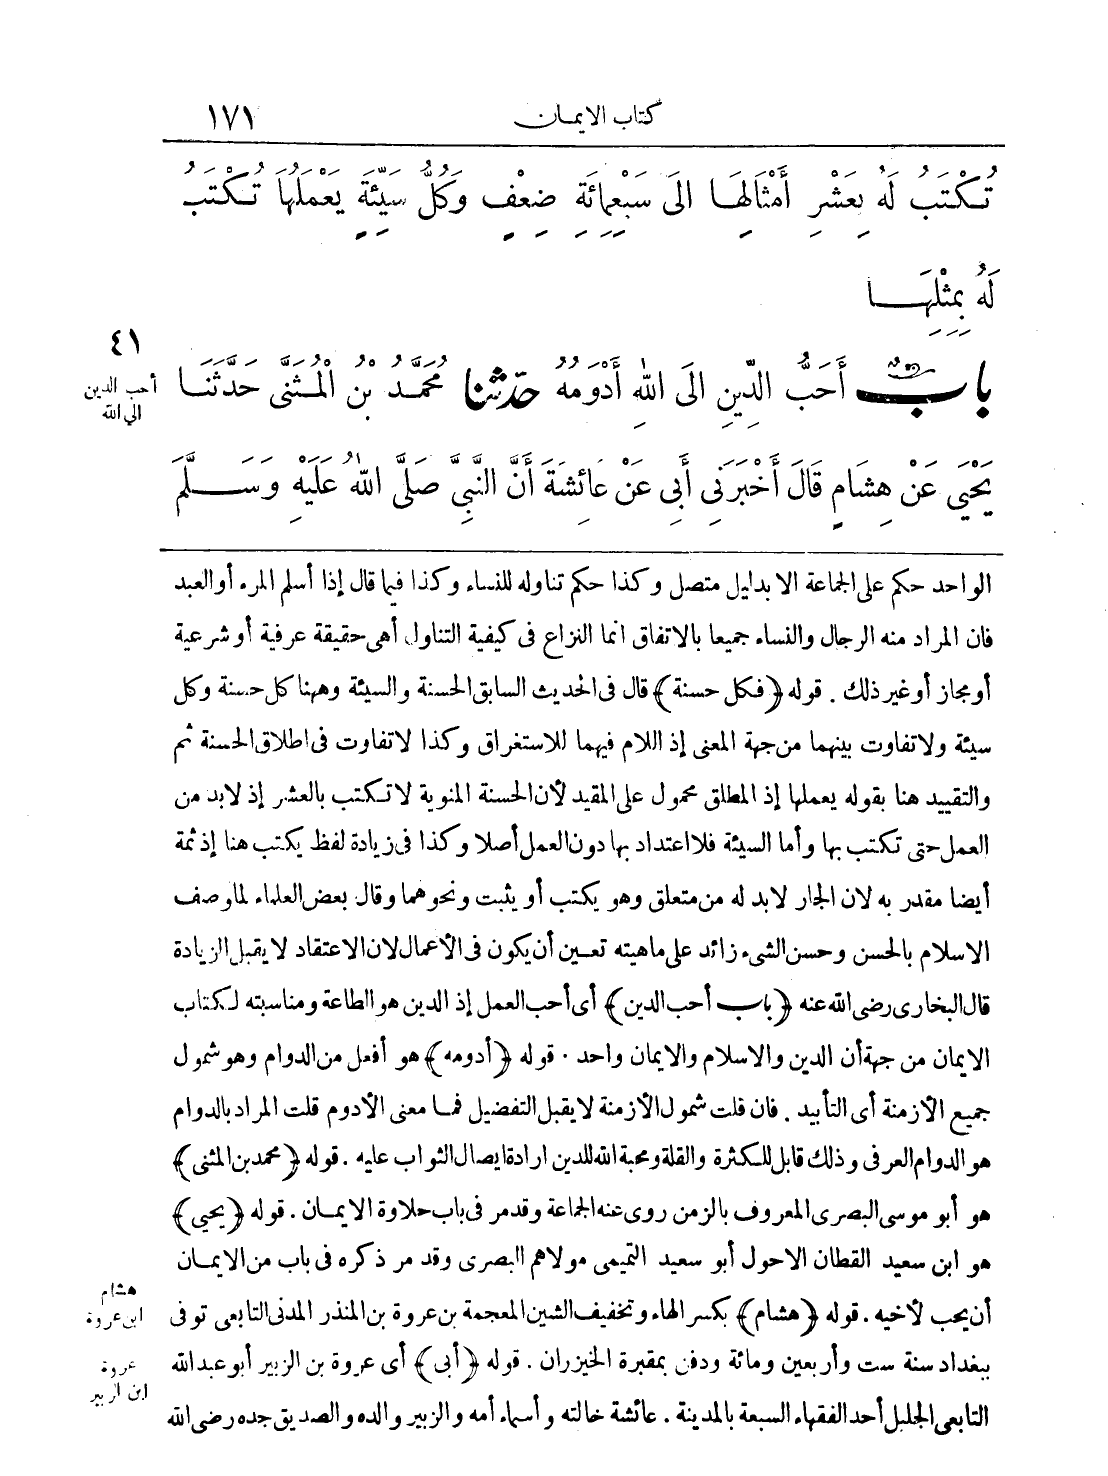 كتاب الايمان ١٧١
تُكْتَبُ لَهُ بِعَشْرِ أَمْثَالِهَا الَى سَبْعِمِائَةِ ضِعْفٍ وَكُلُّ سَيِّئَةٍ يَعْمَلُهَا تُكْتَبُ
لَهُ بِمِثْلِهَا
٤١
أحب الدين
الى الله
بابٌ أَحَبُّ الدِّينِ الَى اللهِ أَدْوَمُهُ حدثنا مُحَمَّدُ بْنُ الْمُثَنَّى حَدَّثَنَا
يَحْيَى عَنْ هِشَامٍ قَالَ أَخْبَرَنِى أَبِى عَنْ عَائِشَةَ أَنَّ النَّبِىَّ صَلَّى اللهُ عَلَيْهِ وَسَلَّمَ
الواحد حكم على الجماعة الا بدليل متصل وكذا حكم تناوله للنساء وكذا فيما قال إذا أسلم المرء أو العبد
فان المراد منه الرجال والنساء جميعا بالاتفاق انما النزاع فى كيفية التناول أهى حقيقة عرفية أو شرعية
أو مجاز أو غير ذلك . قوله ﴿فكل حسنة﴾ قال فى الحديث السابق الحسنة والسيئة وههنا كل حسنة وكل
سيئة ولا تفاوت بينهما من جهة المعنى إذ اللام فيهما للاستغراق وكذا لا تفاوت فى اطلاق الحسنة ثم
والتقييد هنا بقوله يعملها إذ المطلق محمول على المقيد لأن الحسنة المنوية لا تكتب بالعشر إذ لا بد من
العمل حتى تكتب بها وأما السيئة فلا اعتداد بها دون العمل أصلا وكذا فى زيادة لفظ يكتب هنا إذ ثمة
أيضا مقدر به لان الجار لا بد له من متعلق وهو يكتب أو يثبت ونحوهما وقال بعض العلماء لما وصف
الاسلام بالحسن وحسن الشىء زائد على ماهيته تعين أن يكون فى الأعمال لان الاعتقاد لا يقبل الزيادة
قال البخارى رضى الله عنه ﴿باب أحب الدين﴾ أى أحب العمل إذ الدين هو الطاعة ومناسبته لكتاب
الايمان من جهة أن الدين والاسلام والايمان واحد . قوله ﴿أدومه﴾ هو أفعل من الدوام وهو شمول
جميع الأزمنة أى التأبيد . فان قلت شمول الأزمنة لا يقبل التفضيل فما معنى الأدوم قلت المراد بالدوام
هو الدوام العرفى وذلك قابل للكثرة والقلة ومحبة الله للدين ارادة ايصال الثواب عليه . قوله ﴿محمد بن المثنى﴾
هو أبو موسى البصرى المعروف بالزمن روى عنه الجماعة وقد مر فى باب حلاوة الايمان . قوله ﴿يحيى﴾
هو ابن سعيد القطان الاحول أبو سعيد التميمى مولاهم البصرى وقد مر ذكره فى باب من الايمان
أن يحب لأخيه . قوله ﴿هشام﴾ بكسر الهاء وتخفيف الشين المعجمة بن عروة بن المنذر المدنى التابعى توفى
ببغداد سنة ست وأربعين ومائة ودفن بمقبرة الخيزران . قوله ﴿أبى﴾ أى عروة بن الزبير أبو عبد الله
التابعى الجليل أحد الفقهاء السبعة بالمدينة . عائشة خالته وأسماء أمه والزبير والده والصديق جده رضى الله
هشام
ابن عروة
عروة
ابن الزبير